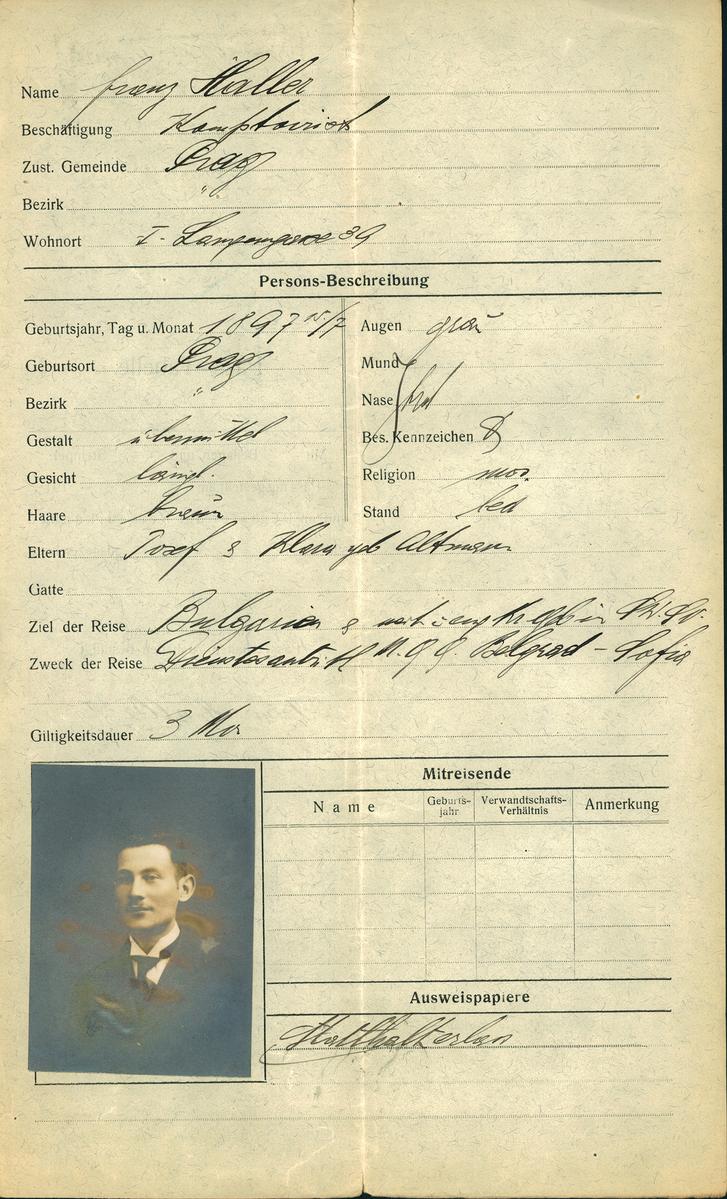 Name Franz Haller
Beschäftigung Komptoirist
Zust. Gemeinde Prag
Bezirk "
Wohnort I- 39
Persons-Beschreibung
Geburtsjahr, Tag u. Monat 1897 15/7
Augen grau
Geburtsort Prag
Mund
Bezirk "
Nase
Gestalt übermittel
Bes. Kennzeichen
Gesicht längl.
Religion mos.
Haare braun
Stand led
Eltern Josef & Klara geb Altmann
Gatte
Ziel der Reise Bulgarien &
Zweck der Reise Dienstesantritt Belgrad - Sofia
Giltigkeitsdauer 3 Mo
Mitreisende
Name
Geburts-jahr
Verwandtschafts-Verhältnis
Anmerkung
Ausweispapiere